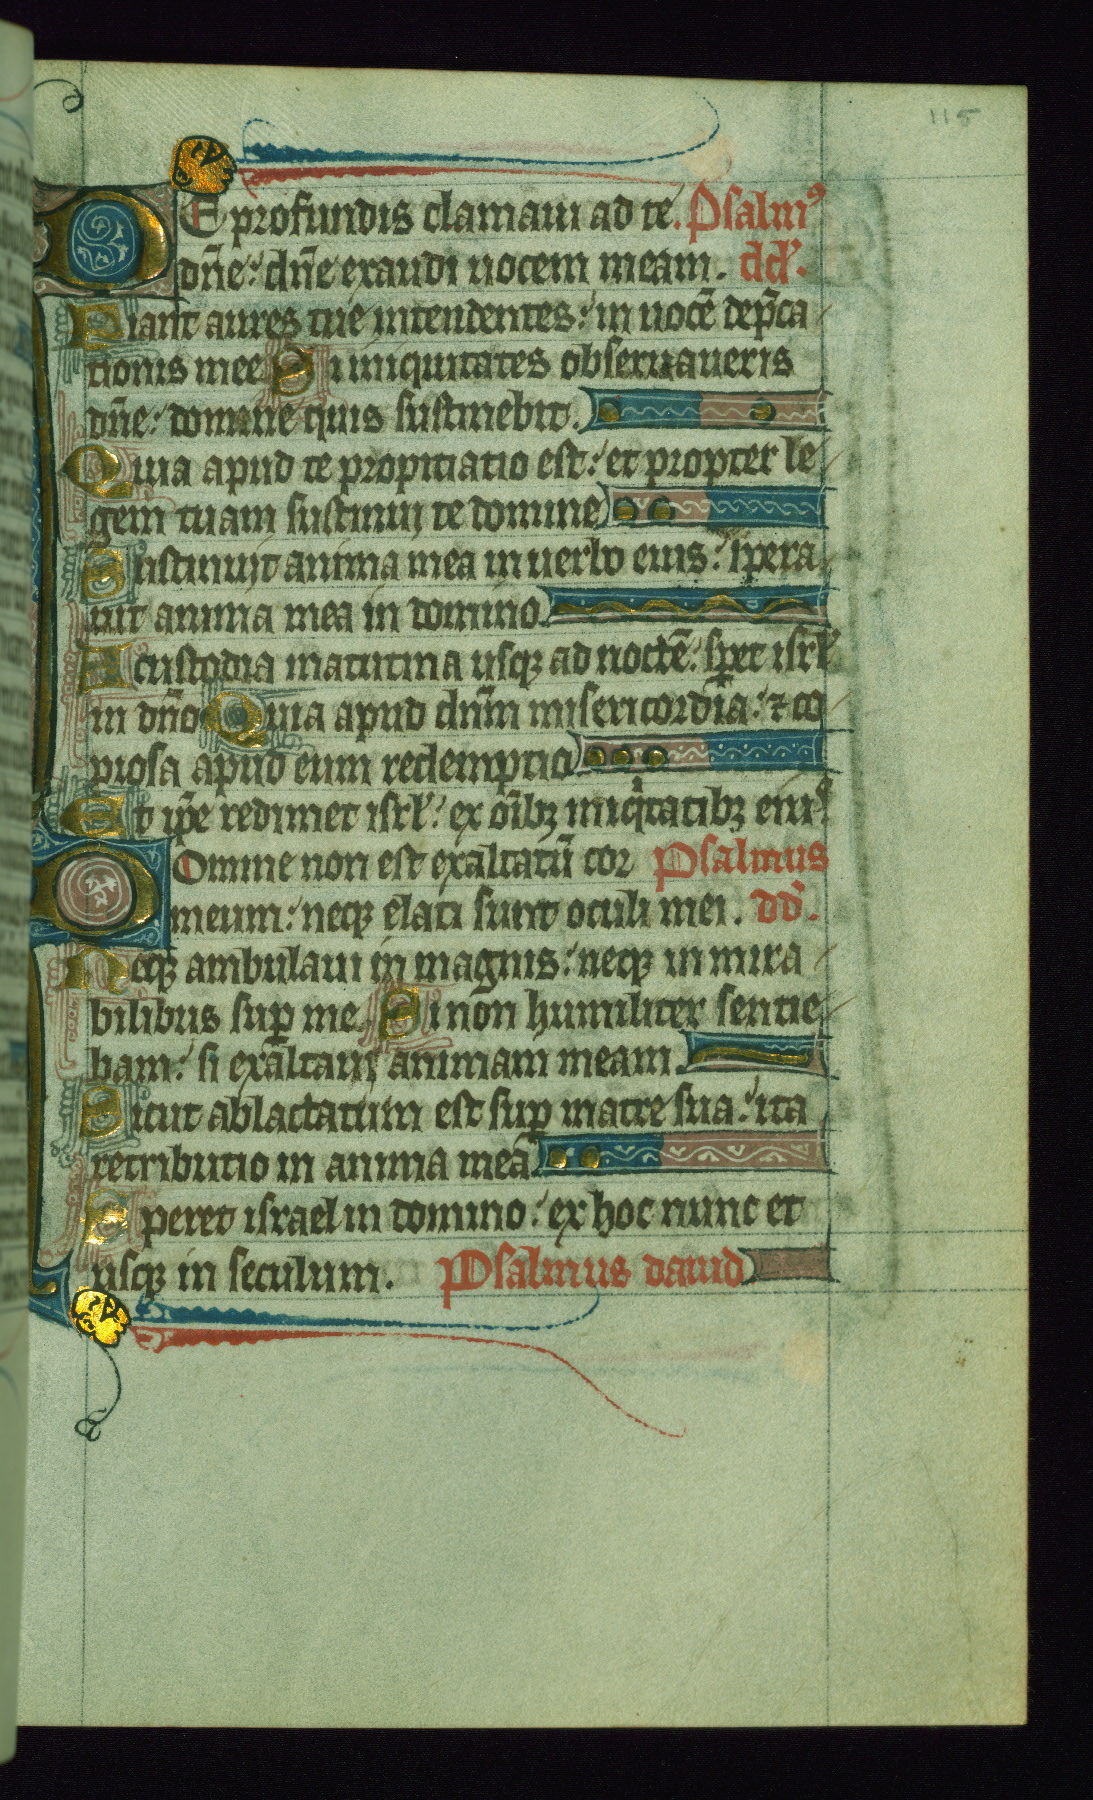 115
DE profundis clamaui ad te. Psalm⁹
dn̄e: dn̄e exaudi uocem meam. dd'.
Fiant aures tue intendentes: in uocē dep̄ca
tionis mee Si iniquitates obseruaueris
dn̄e: domine quis sustinebit.
Quia apud te propitiatio est: et propter le
gem tuam sustinui te domine
Sustinuit anima mea in uerbo eius: spera
uit anima mea in domino.
A custodia matutina usqꝫ ad noctē: sꝑet isrl'
in dn̄o Quia apud dn̄m misericordia: ⁊ co
piosa apud eum redemptio
Et ip̄e redimet isrl': ex om̄ibꝫ iniqⁱtatibꝫ eiu⁹
Domine non est exaltatū cor Psalmus
meum: neqꝫ elati sunt oculi mei. dd'.
Neqꝫ ambulaui in magnis: neqꝫ in mira
bilibus suꝑ me. Si non humiliter sentie
bam: si exaltaui animam meam.
Sicut ablactatum est suꝑ matre sua: ita
retributio in anima meā.
Speret israel in domino: ex hoc nunc et
usqꝫ in seculum. Psalmus dauid